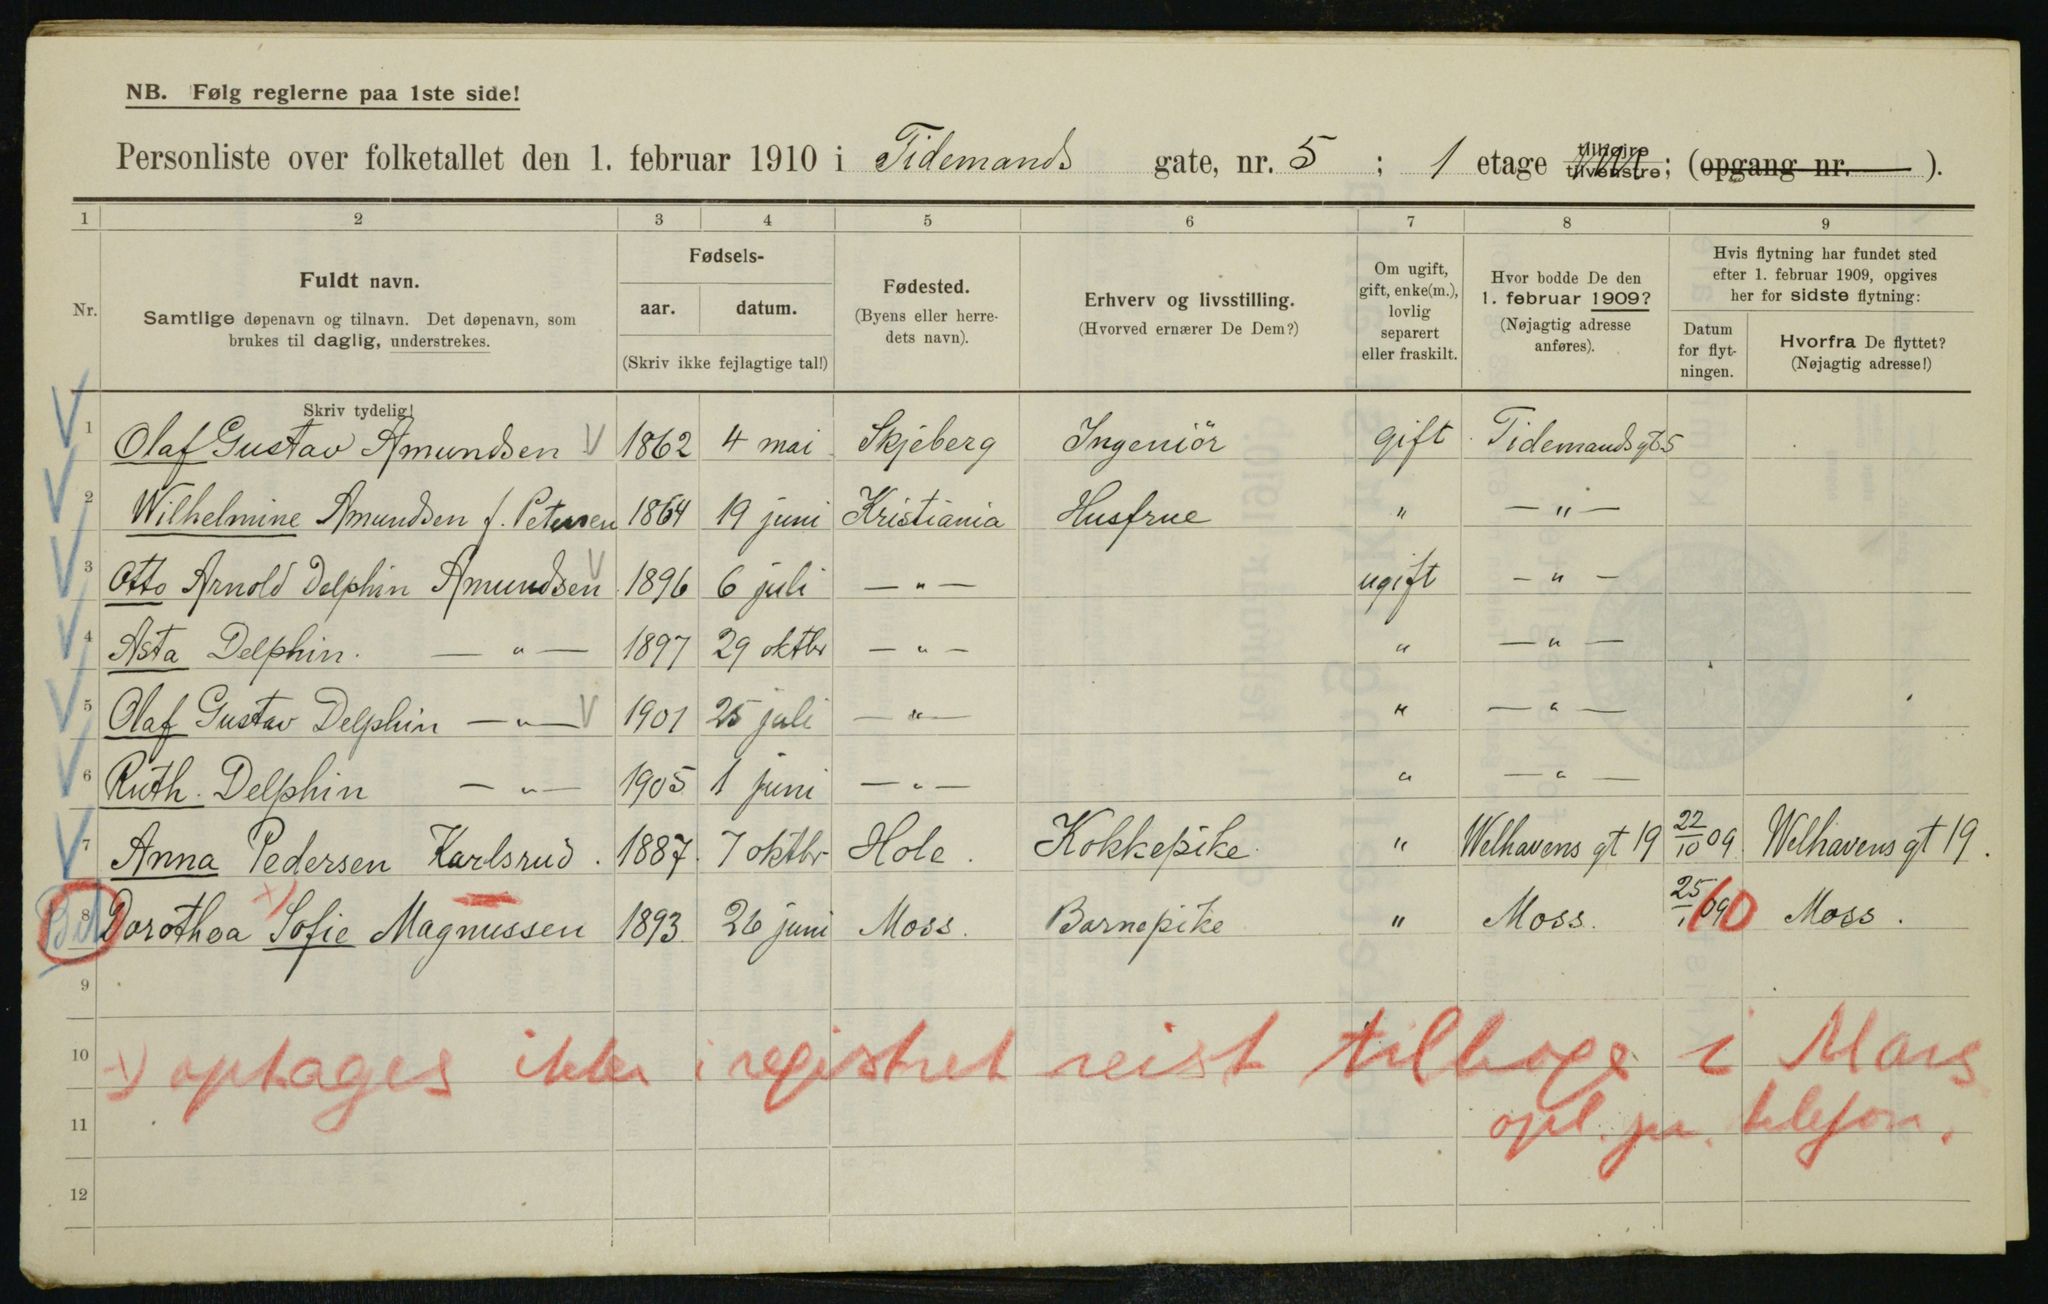 NB. Følg reglerne paa 1ste side!
Personliste over folketallet den 1. februar 1910 i Tidemands gate, nr. 5 ; 1 etage tilhøire tilvenstre; (opgang nr. ).
1 2 3 4 5 6 7 8 9
Nr.
Fuldt navn.
Samtlige døpenavn og tilnavn. Det døpenavn, som
brukes til daglig, understrekes.
Fødsels-
aar. datum.
(Skriv ikke feilagtige tal!)
Fødested.
(Byens eller herre-
dets navn).
Erhverv og livsstilling.
(Hvorved ernærer De Dem?)
Om ugift,
gift, enke(m.),
lovlig
separert
eller fraskilt.
Hvor bodde De den
1. februar 1909?
(Nøjagtig adresse
anføres).
Hvis flytning har fundet sted
efter 1. februar 1909, opgives
her for sidste flytning:
Datum
for flyt-
ningen.
Hvorfra De flyttet?
(Nøjagtig adresse!)
Skriv tydelig!
1 Olaf Gustav Amundsen 1862 4 mai Skjeberg Ingeniör gift Tidemandsgt 5
2 Wilhelmine Amundsen f. Petersen 1864 19 juni Kristiania Husfrue " — " —
3 Otto Arnold Delphin Amundsen 1896 6 juli — " — ugift — " —
4 Asta Delphin. — " — 1897 29 oktbr — " — " — " —
5 Olaf Gustav Delphin — " — 1901 25 juli — " — " — " —
6 Ruth. Delphin — " — 1905 1 juni — " — " — " —
7 Anna Pedersen Karlsrud. 1887. 7 oktbr Hole. Kokkepike. " Welhavens gt 19 22/10 09. Welhavens gt 19.
8 Dorothea Sofie Magnussen 1893. 26 juni Moss. Barnepike " Moss. 25/1 09 10 Moss.
9
10 x) optages ikke i registret reist tilbage i Mars
11 opl. pr. telefon.
12